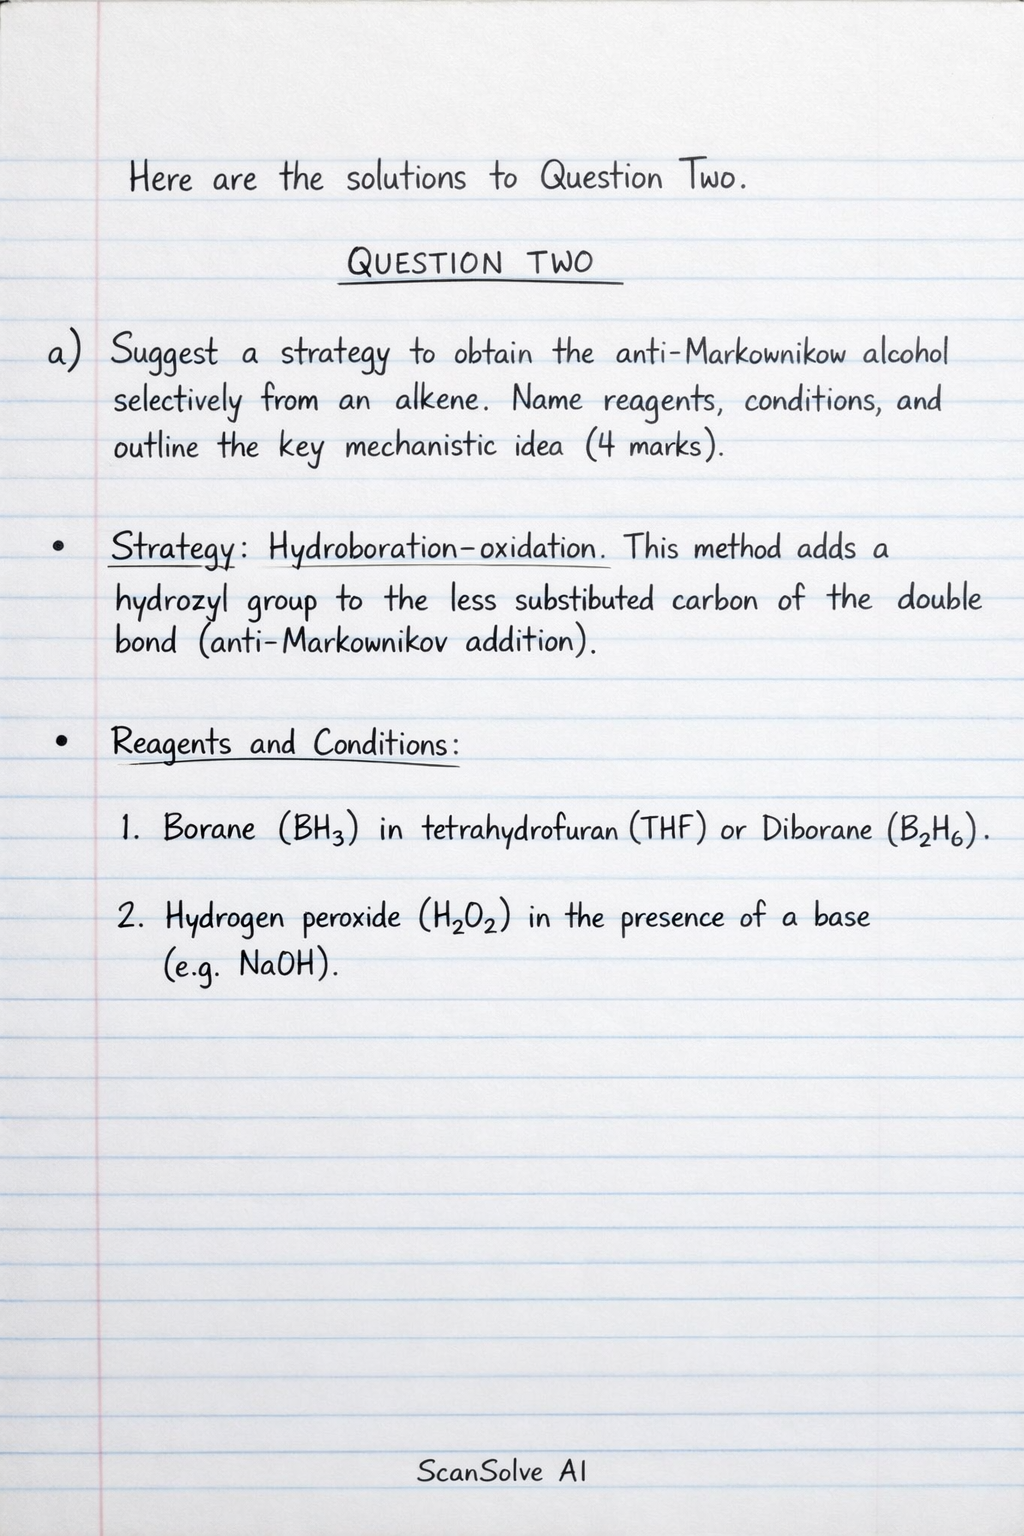 Here are the solutions to Question Two.
QUESTION TWO
a) Suggest a strategy to obtain the anti-Markownikow alcohol
selectively from an alkene. Name reagents, conditions, and
outline the key mechanistic idea (4 marks).
• Strategy: Hydroboration-oxidation. This method adds a
hydrozyl group to the less substibuted carbon of the double
bond (anti-Markownikov addition).
• Reagents and Conditions:
1. Borane (BH₃) in tetrahydrofuran (THF) or Diborane (B₂H₆).
2. Hydrogen peroxide (H₂O₂) in the presence of a base
(e.g. NaOH).
ScanSolve AI